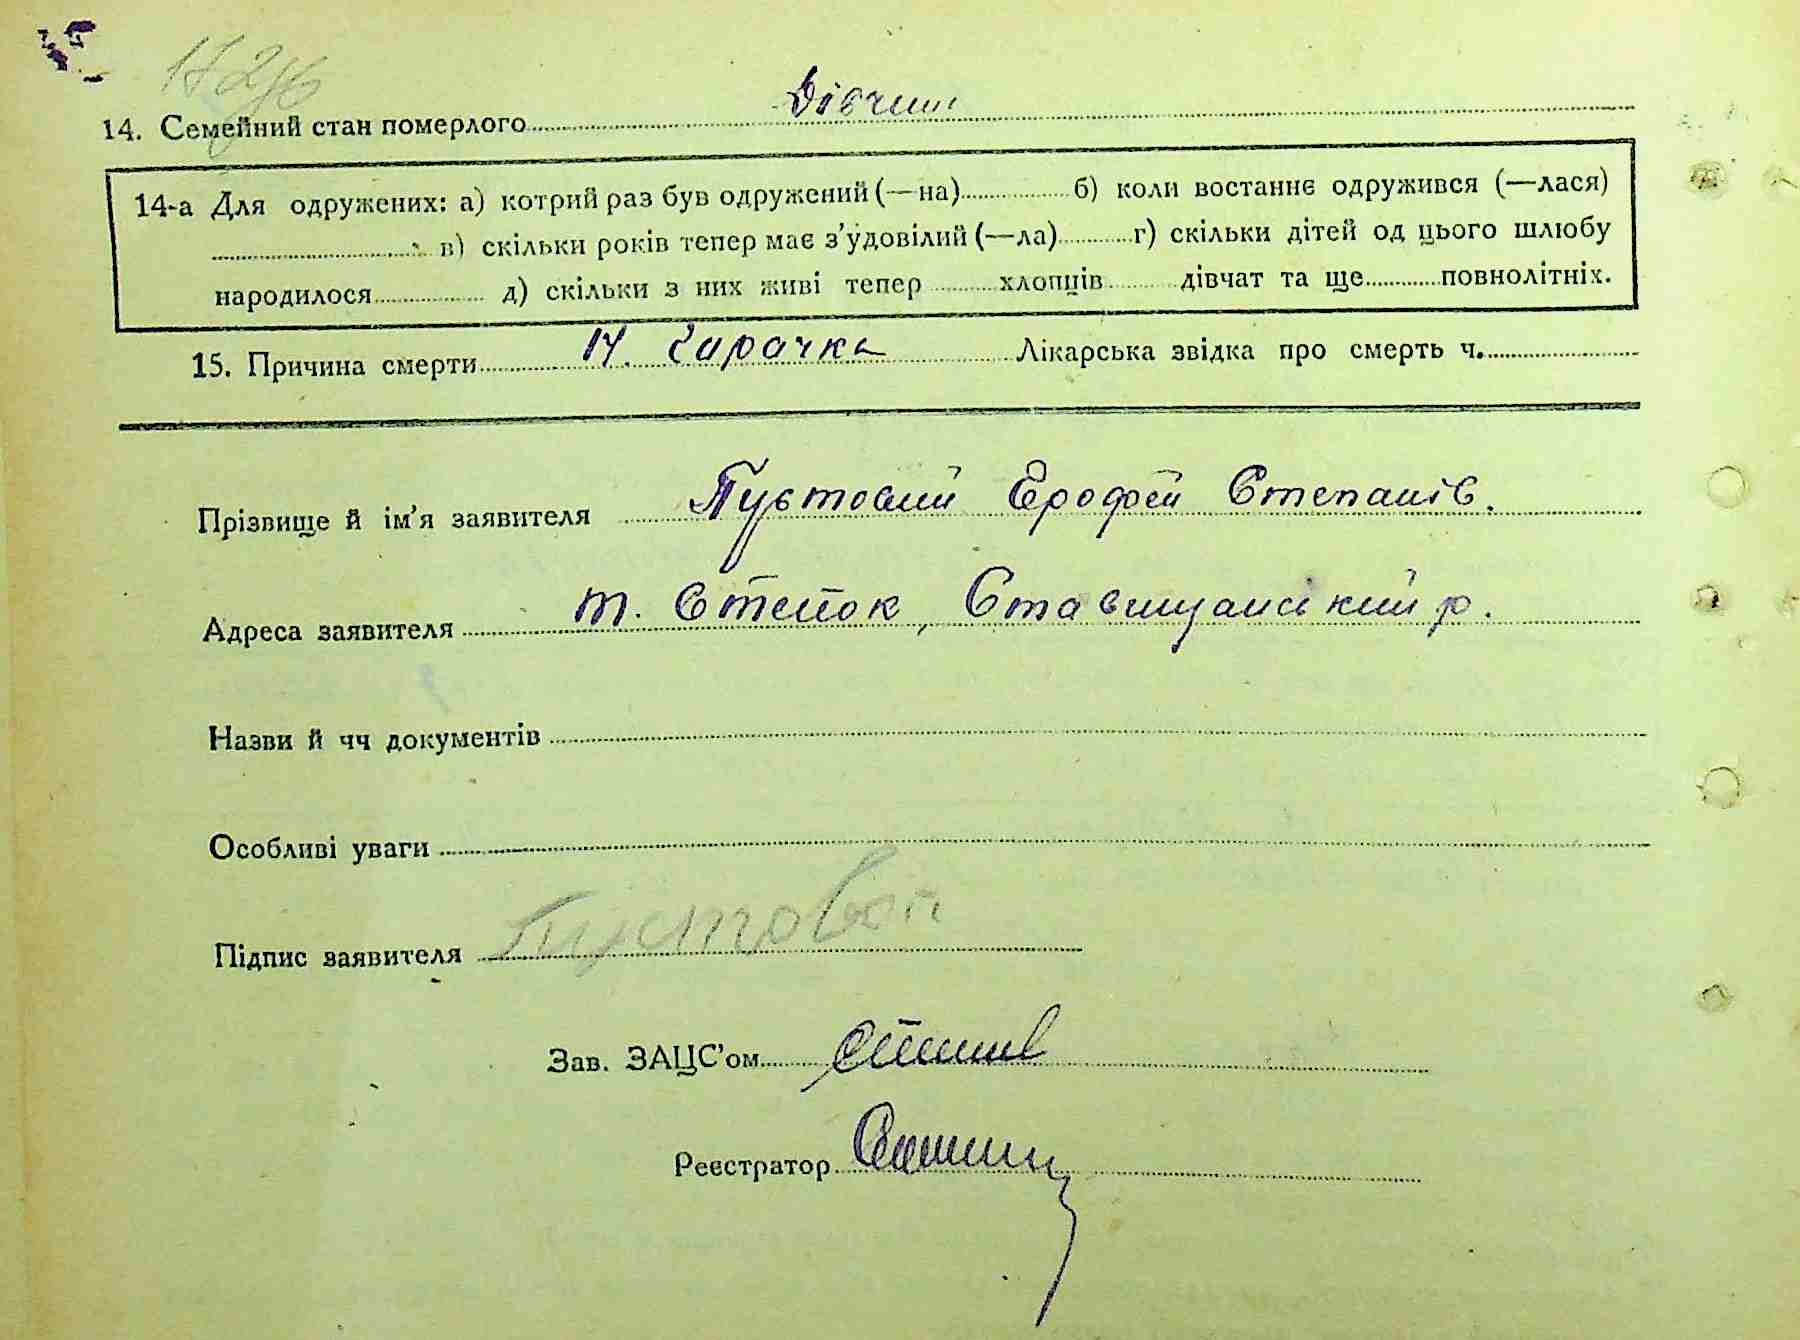 14. Семейний стан померлого Дівчин
14-а Для одружених: а) котрий раз був одружений (—на) б) коли востаннє одружився (—лася)
в) скільки років тепер має з’удовілий (—ла) г) скільки дітей од цього шлюбу
народилося д) скільки з них живі тепер хлопців дівчат та ще повнолітніх.
15. Причина смерти 14. Гарачка Лікарська звідка про смерть ч.
Прізвище й ім’я заявителя Пустовий Єрофей Степанів.
Адреса заявителя Степок, Ставищанський р.
Назви й чч документів
Особливі уваги
Підпис заявителя Пустовой
Зав. ЗАЦС’ом
Реєстратор